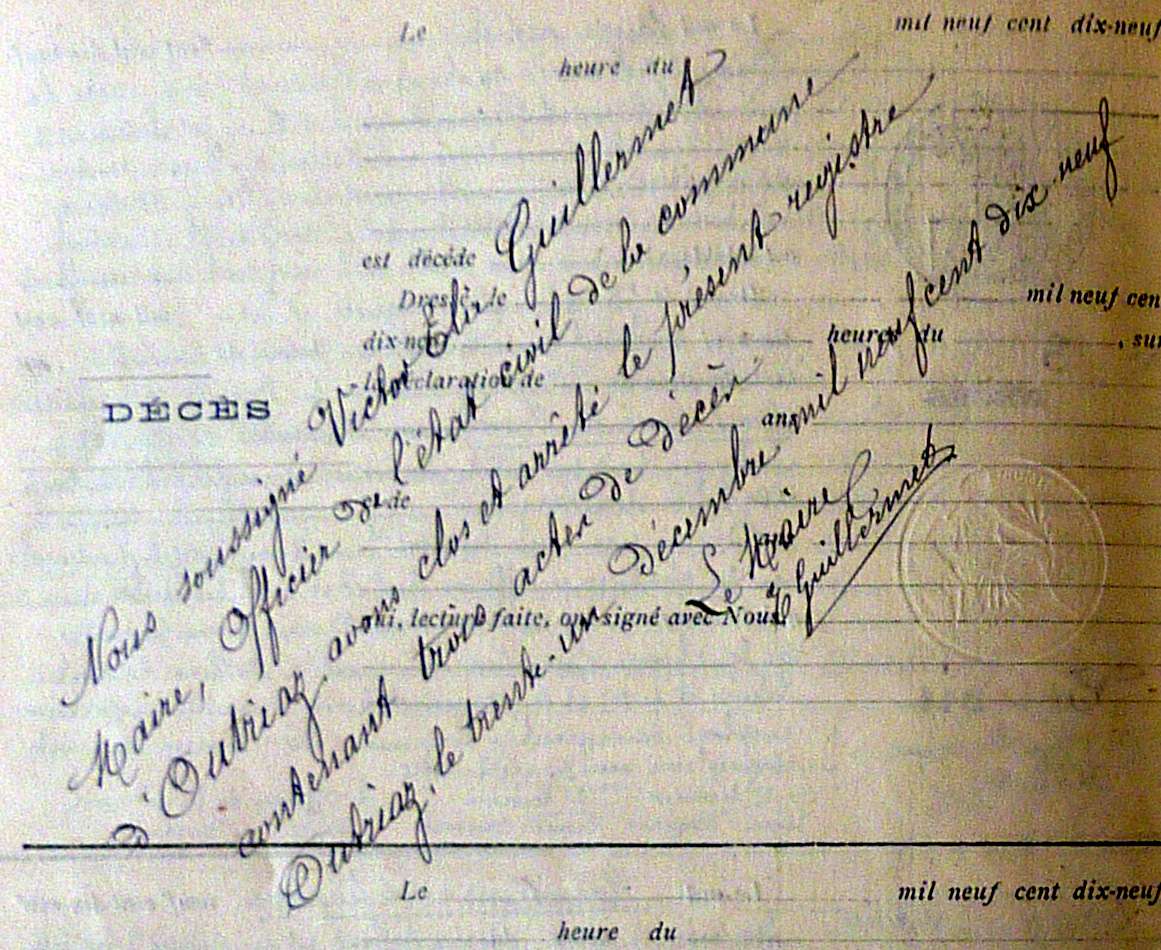 Le mil neuf cent dix-neuf
heure du
est décédé
Dressé le mil neuf cen
dix-neuf heure du , sur
la déclaration de
DÉCÈS
ans
de
qui, lecture faite, ont signé avec Nous.
Nous soussigné Victor Élie Guillermet
Maire, Officier de l'état civil de la commune
d'Outriaz, avons clos et arrêté le présent registre
contenant trois actes de décès
Outriaz, le trente-un décembre mil neuf cent dix-neuf
Le Maire
Guillermet
Le mil neuf cent dix-neuf
heure du